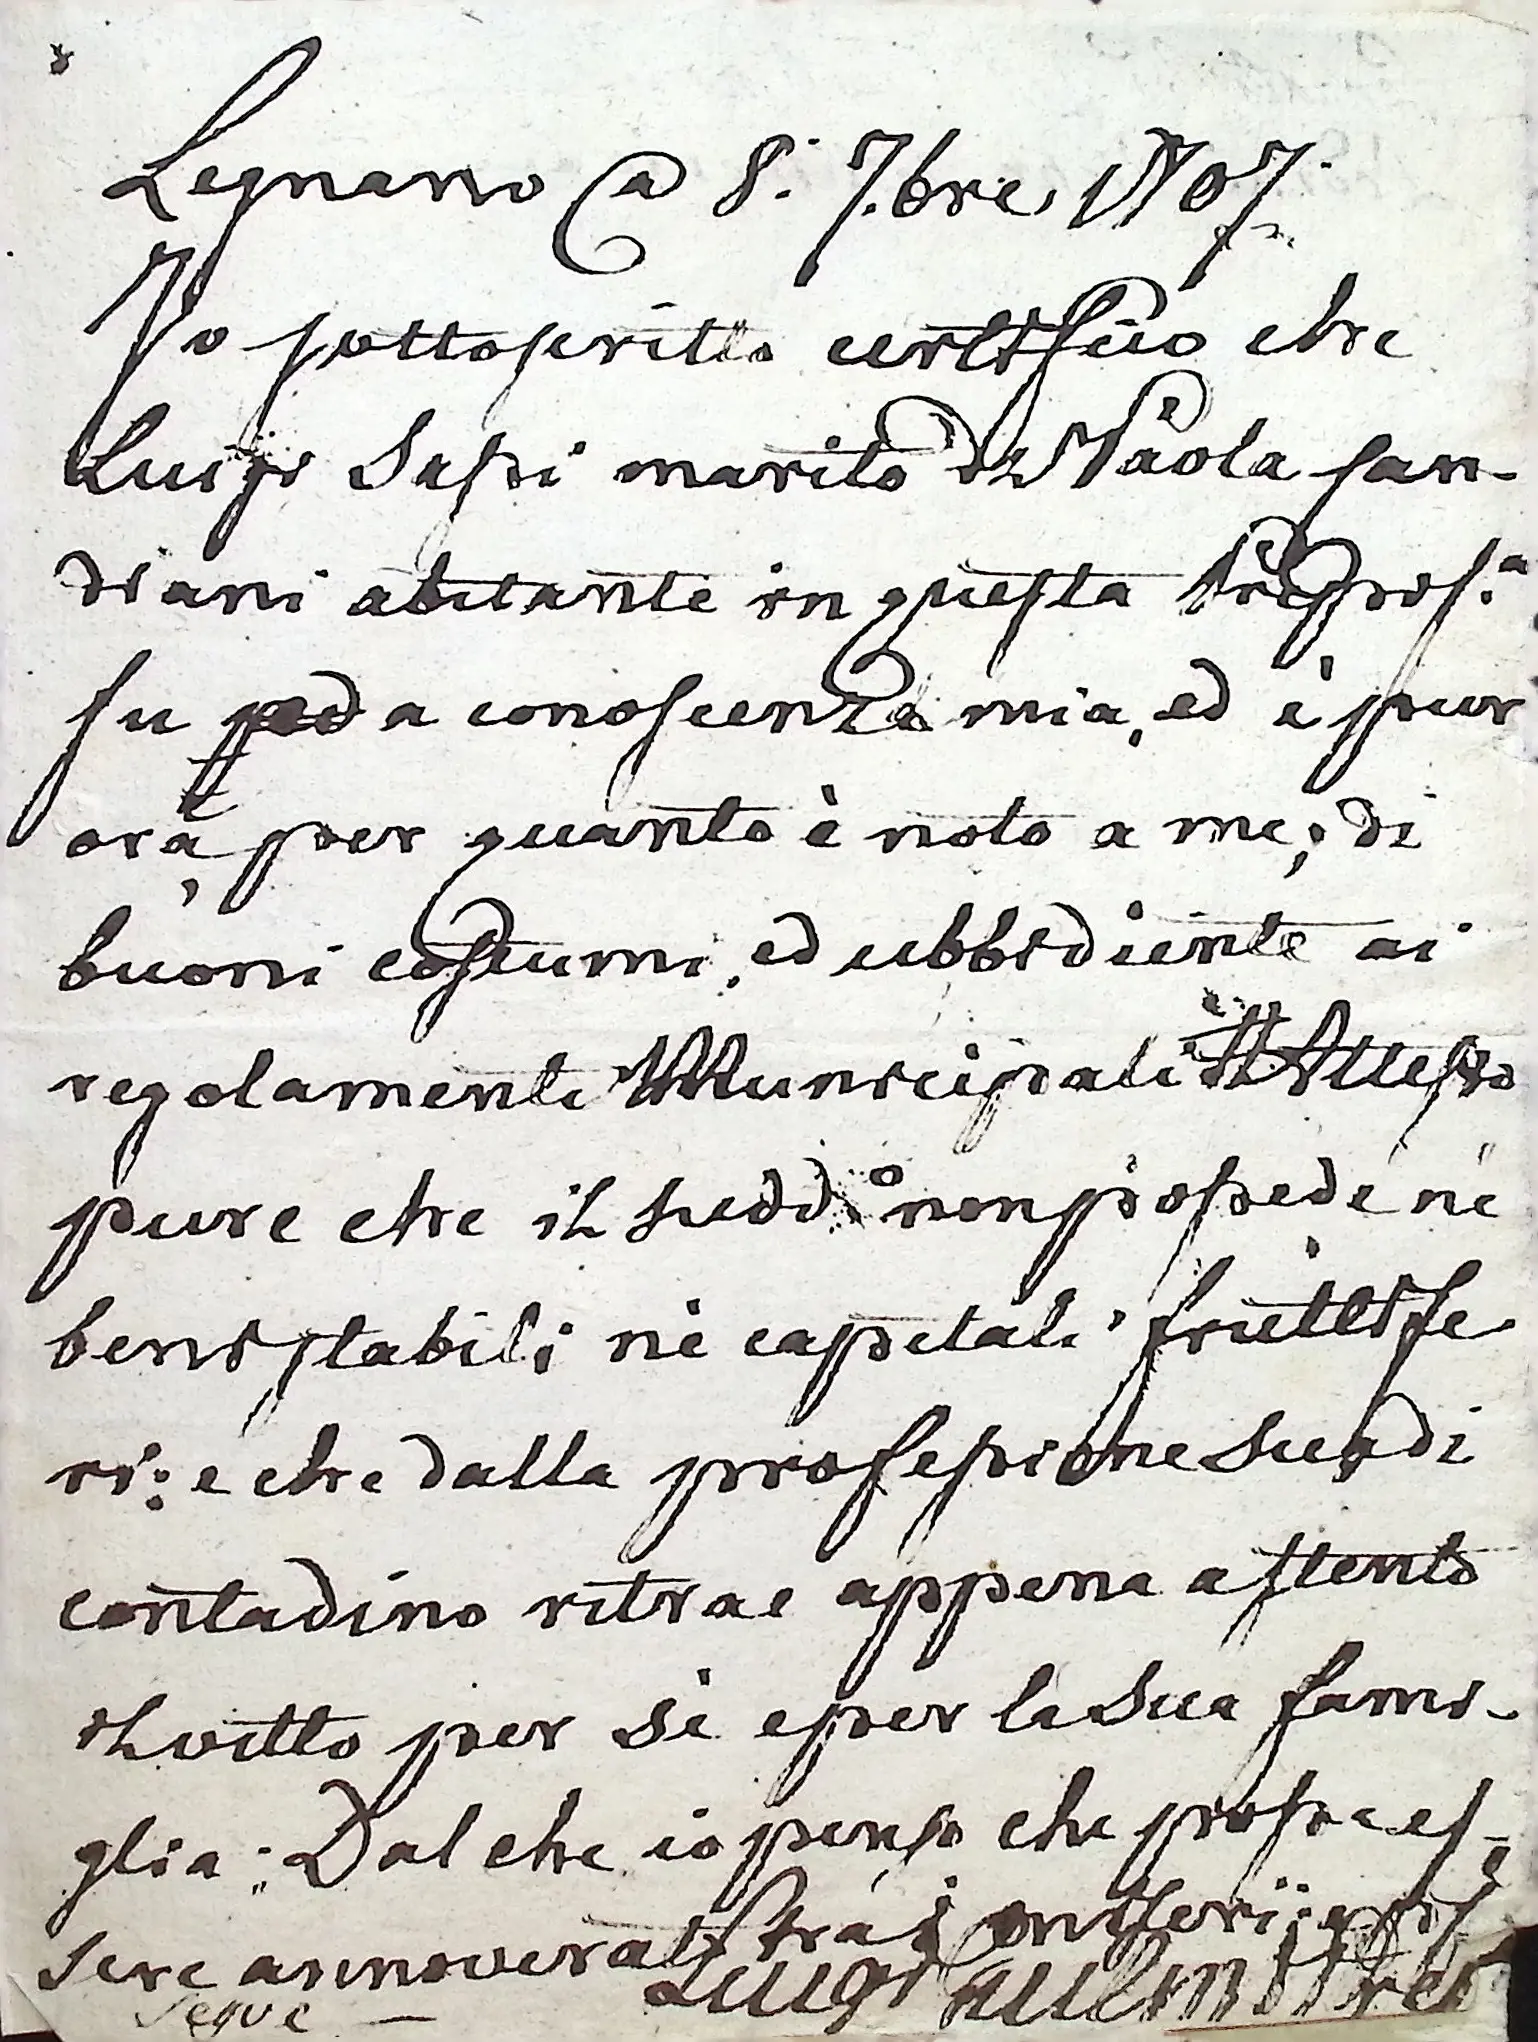 Legnano @ 8. 7.bre 1807.
Io sottoscritto certifico che
Luigi Sessi marito di Paola San-
diani abitante in questa Prepos.a
fu da conoscenza mia, ed è pur
ora, per quanto è noto a me, di
buoni costumi, ed ubbidiente ai
regolamenti Municipali: Attesto
pure che il sudd.o non possede nè
beni stabili nè capitali fruttife
ri: e che dalla professione sua di
contadino ritrae appena a stento
il vitto per sè e per la sua fami-
glia: Dal che io penso che possa es-
sere annoverato tra i miseri: e
Luigi
segue —